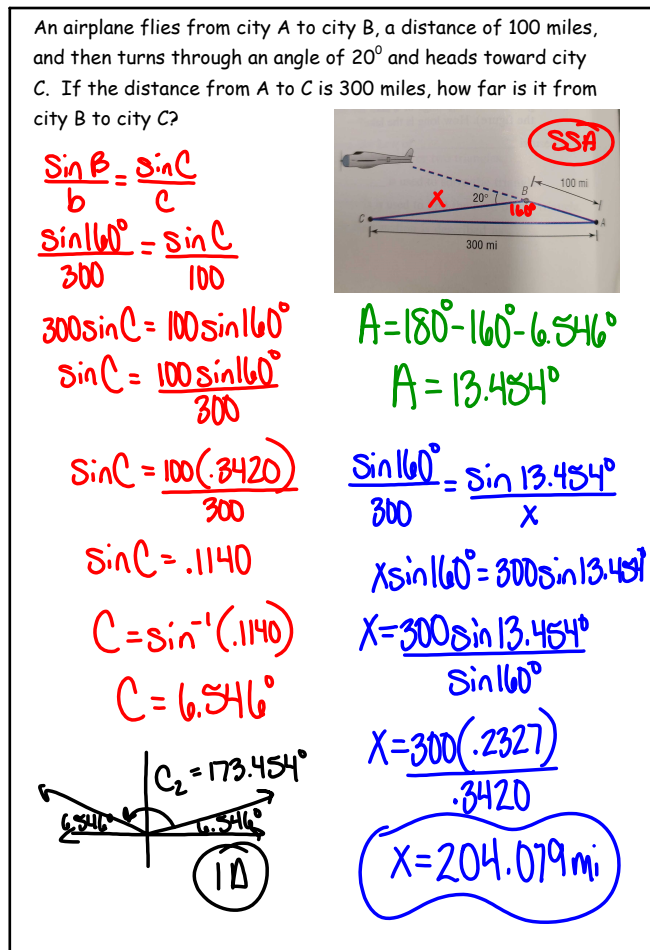 An airplane flies from city A to city B, a distance of 100 miles,
and then turns through an angle of 20⁰ and heads toward city
C. If the distance from A to C is 300 miles, how far is it from
city B to city C?
SSA
100 mi
B
20°
160°
X
C
A
300 mi
Sin B/b = sinC/c
sin160°/300 = sin C/100
300sinC = 100sin160°
sinC = 100 sin160°/300
sinC = 100(.3420)/300
sinC = .1140
C = sin⁻¹(.1140)
C = 6.546°
C₂ = 173.454°
6.546°
6.546°
1Δ
A=180°-160°-6.546°
A = 13.454°
Sin160°/300 = sin 13.454°/x
xsin160° = 300sin13.454
X=300sin13.454°/sin160°
X=300(.2327)/.3420
X=204.079mi